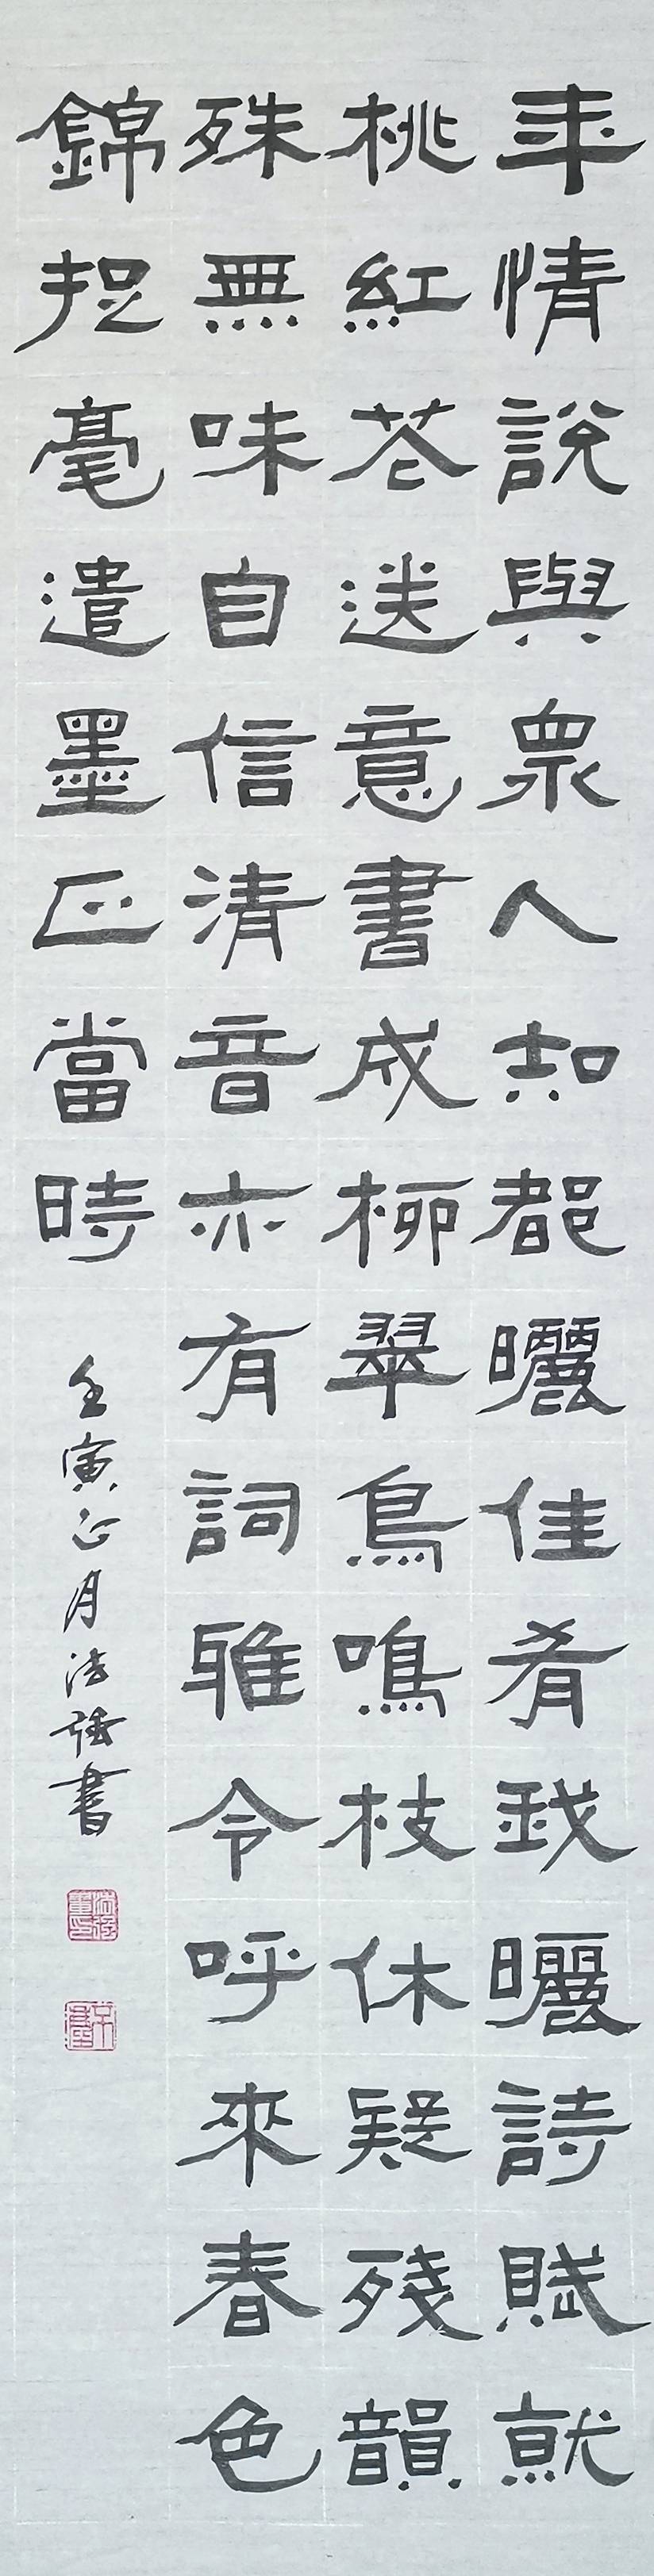 年情說與衆人知都曬佳肴我曬詩賦就
桃紅花送意書成柳翠鳥鳴枝休疑殘韻
殊無味自信清音亦有詞雅令呼來春色
錦挹毫遣墨正當時
壬寅正月法強書